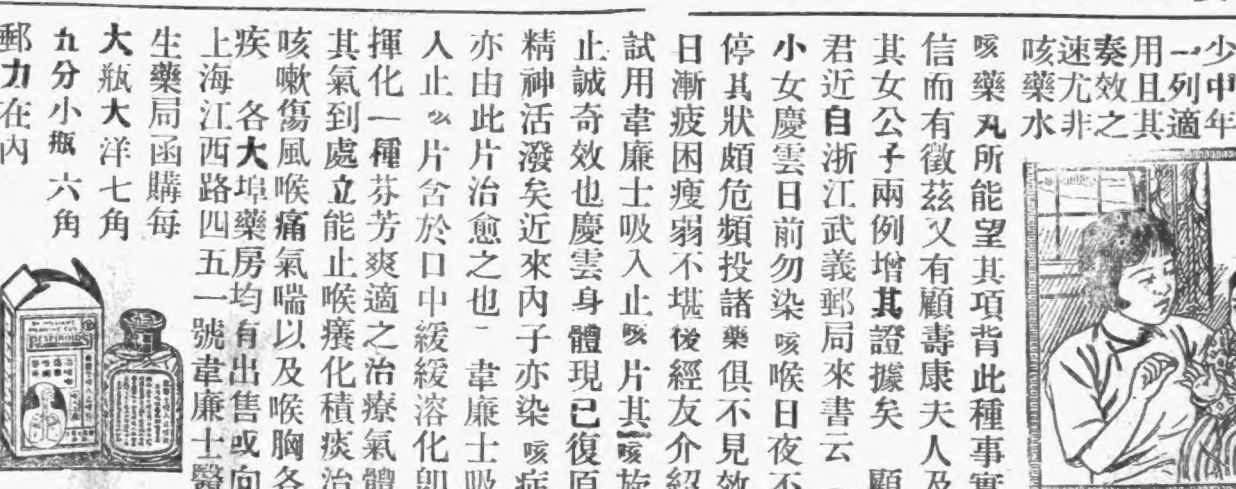 少中年
一列適
用且其
奏效之
速尤非
咳藥水
咳藥丸所能望其項背此種事實
信而有徵茲又有顧壽康夫人及
其女公子兩例增其證據矣 顧
君近自浙江武義郵局來書云
小女慶雲日前勿染咳喉日夜不
停其狀頗危頻投諸藥俱不見效
日漸疲困瘦弱不堪後經友介紹
試用韋廉士吸入止咳片其咳旋
止誠奇效也慶雲身體現已復原
精神活潑矣近來內子亦染咳症
亦由此片治愈之也 韋廉士吸
入止咳片含於口中緩緩溶化卽
揮化一種芬芳爽適之治療氣體
其氣到處立能止喉癢化積痰治
咳嗽傷風喉痛氣喘以及喉胸各
疾 各大埠藥房均有出售或向
上海江西路四五一號韋廉士醫
生藥局函購每
大瓶大洋七角
九分小瓶六角
郵力在內
RESPIROIDS